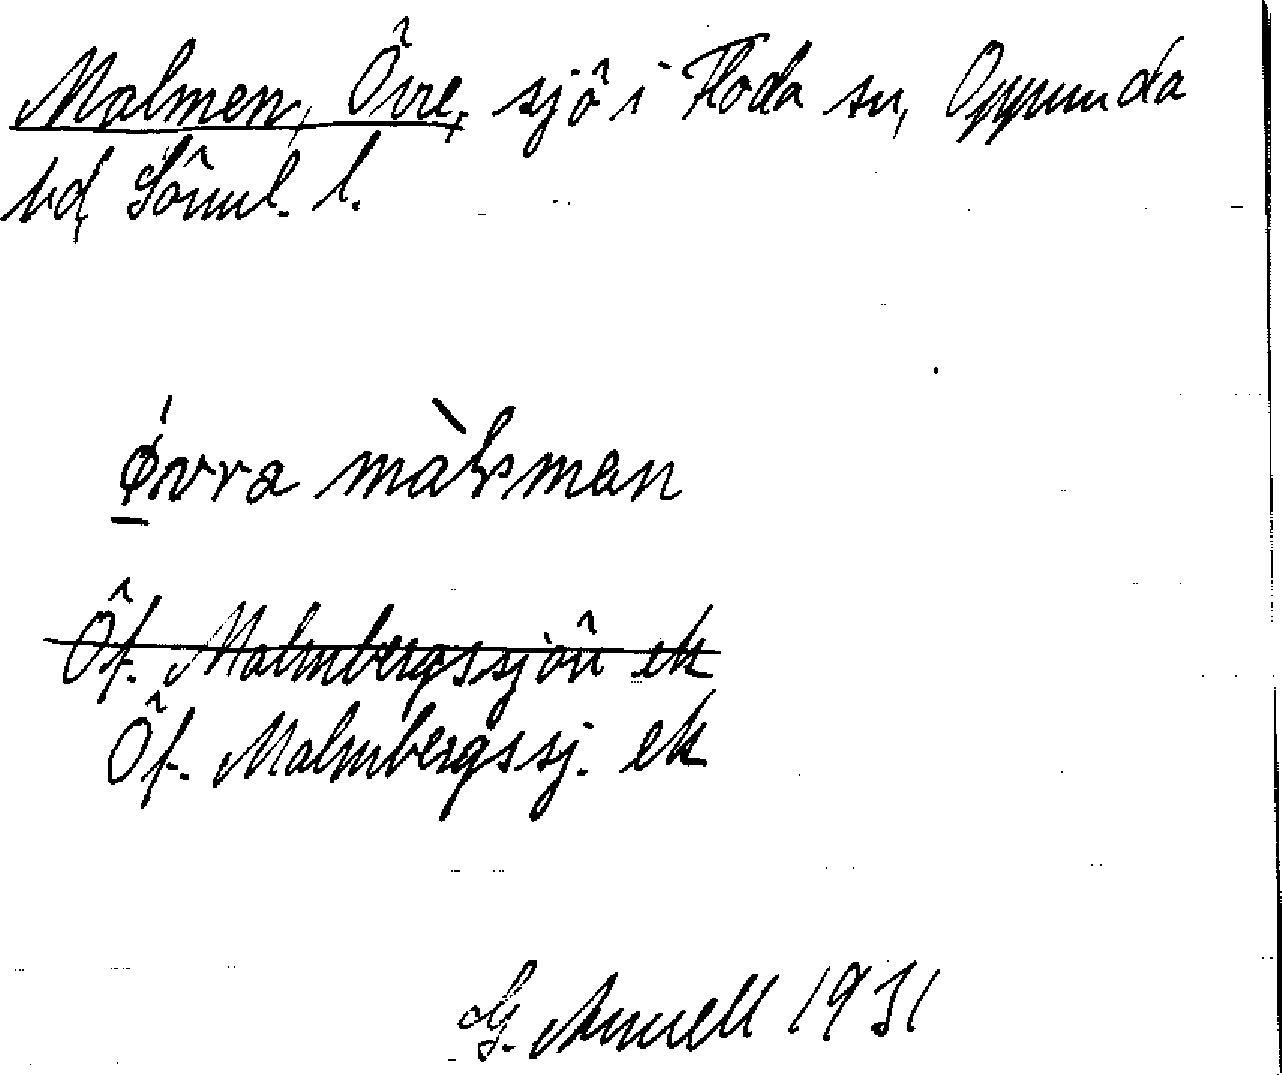 Malmen, Övre, sjö i Floda sn, Oppunda
hd, Söml. l.
øvra màlmen
Öf. Malmbergssjön ek
Öf. Malmbergssj. ek
G. Annell 1931